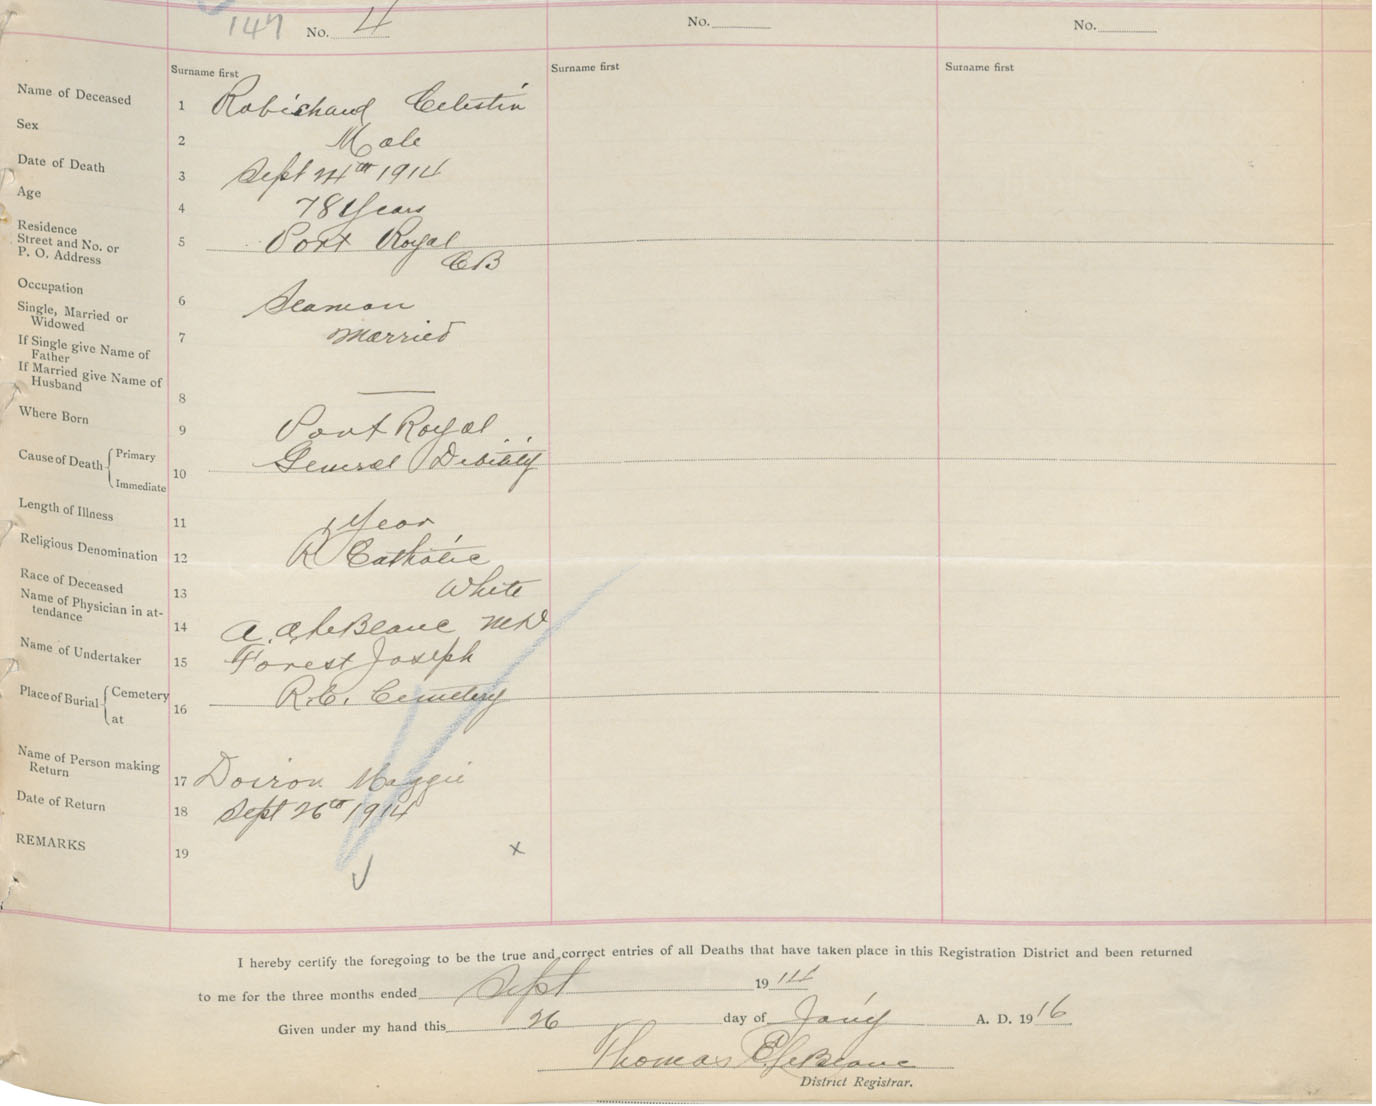 147 No. 4 No. No.
Surname first Surname first Surname first
Name of Deceased 1 Robichaud Celestin
Sex 2 Male
Date of Death 3 Sept 24th 1914
Age 4 78 Years
Residence
Street and No. or
P. O. Address 5 Port Royal
CB
Occupation 6 Seaman
Single, Married or
Widowed 7 Married
If Single give Name of
Father
If Married give Name of
Husband 8 —
Where Born 9 Port Royal
Cause of Death { Primary General Debility
Immediate 10
Length of Illness 11 Year
Religious Denomination 12 R Catholic
Race of Deceased 13 White
Name of Physician in at-
tendance 14 A. A. LeBlanc MD
Name of Undertaker 15 Forest Joseph
Place of Burial { Cemetery R.C. Cemetery
at 16
Name of Person making
Return 17 Doiron Maggie
Date of Return 18 Sept 26th 1914
REMARKS 19 x
I hereby certify the foregoing to be the true and correct entries of all Deaths that have taken place in this Registration District and been returned
to me for the three months ended Sept 1914
Given under my hand this 26 day of Jany A. D. 1916
Thomas LeBlanc
District Registrar.